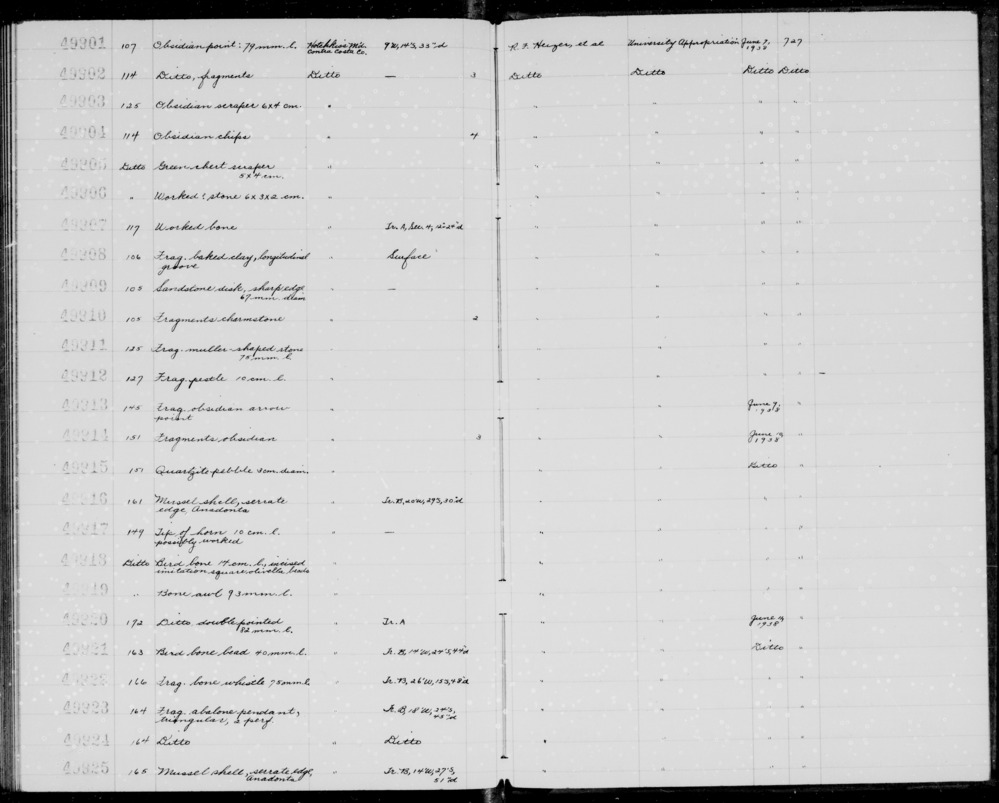 49901 107 Obsidian point: 79 mm. l. Hotchkiss Md. Contra Costa Co. 9'W, 14'S, 35"d R. F. Heizer, et al University Appropriation June 7, 1938 727
49902 114 Ditto, fragments Ditto — 3 Ditto Ditto Ditto Ditto
49903 125 Obsidian scraper 6x4 cm. " " " " "
49904 114 Obsidian chips " 4 " " " "
49905 Ditto Green chert scraper 5x4 cm. " " " " "
49906 " Worked? stone 6x3x2 cm. " " " " "
49907 117 Worked bone " Tr. A, Sec. 4, 12"-24"d " " " "
49908 106 Frag. baked clay, longitudinal groove " Surface " " " "
49909 105 Sandstone disk, sharp edge 67 mm. diam " — " " " "
49910 105 Fragments charmstone " 2 " " " "
49911 125 Frag. muller-shaped stone 75 mm. l. " " " " "
49912 127 Frag. pestle 10 cm. l. " " " " " —
49913 145 Frag. obsidian arrow point " " " June 9, 1938 "
49914 151 Fragments obsidian " 3 " " June 1938 "
49915 151 Quartzite pebble 3 cm. diam. " " " Ditto "
49916 161 Mussel shell, serrate edge, Anadonta " Tr. B, 20'W, 29'S, 30"d " " " "
49917 149 Tip of horn 10 cm. l. possibly worked " — " " " "
49918 Ditto Bird bone 17 cm. l., incised imitation square olivella beads " " " " "
49919 " Bone awl 93 mm. l. " " " " "
49920 192 Ditto, double pointed 82 mm. l. " Tr. A " " June 1938 "
49921 163 Bird bone bead 40 mm. l. " Tr. B, 14'W, 24'S, 44"d " " Ditto "
49922 166 Frag. bone whistle 75 mm l. " Tr. B, 26'W, 15'S, 48"d " " " "
49923 164 Frag. abalone pendant, triangular, 2 perf. " Tr. B, 18'W, 34'S, 45"d " " " "
49924 164 Ditto " Ditto " " " "
49925 165 Mussel shell, serrate edge, Anadonta " Tr. B, 14'W, 27'S, 51"d " " " "